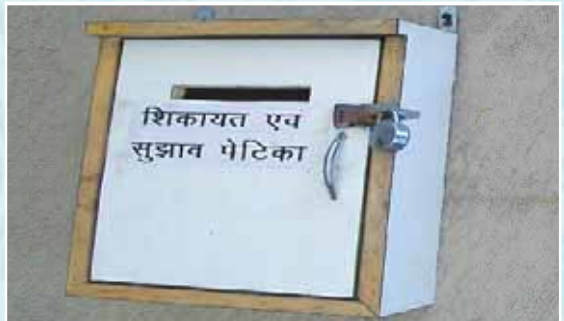 शिकायत एव
सुझाव पेटिका